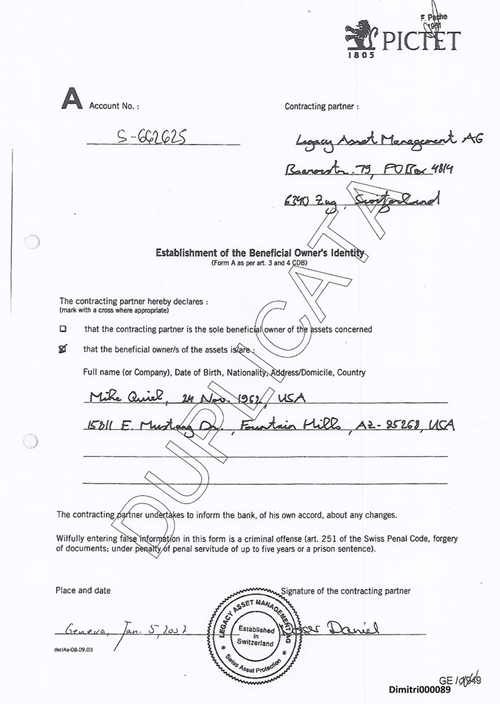 F Pache
PICTET
1805
A Account No. :
Contracting partner :
S-662625
Legacy Asset Management AG
Baarerstr. 75, PO Box 4814
6340 Zug, Switzerland
Establishment of the Beneficial Owner's Identity
(Form A as per art. 3 and 4 CDB)
The contracting partner hereby declares :
(mark with a cross where appropriate)
that the contracting partner is the sole beneficial owner of the assets concerned
that the beneficial owner/s of the assets is/are :
Full name (or Company), Date of Birth, Nationality, Address/Domicile, Country
Mike Quiel, 24 Nov. 1962, USA
15011 E. Mustang Dr., Fountain Hills, AZ- 85268, USA
DUPLICATA
The contracting partner undertakes to inform the bank, of his own accord, about any changes.
Wilfully entering false information in this form is a criminal offence (art. 251 of the Swiss Penal Code, forgery
of documents; under penalty of penal servitude of up to five years or a prison sentence).
Place and date
Signature of the contracting partner
Geneva, Jan. 5, 2007
LEGACY ASSET MANAGEMENT AG
Established
in
Switzerland
Swiss Asset Protection
Daniel
declAa-08.09.03
GE /
Dimitri000089